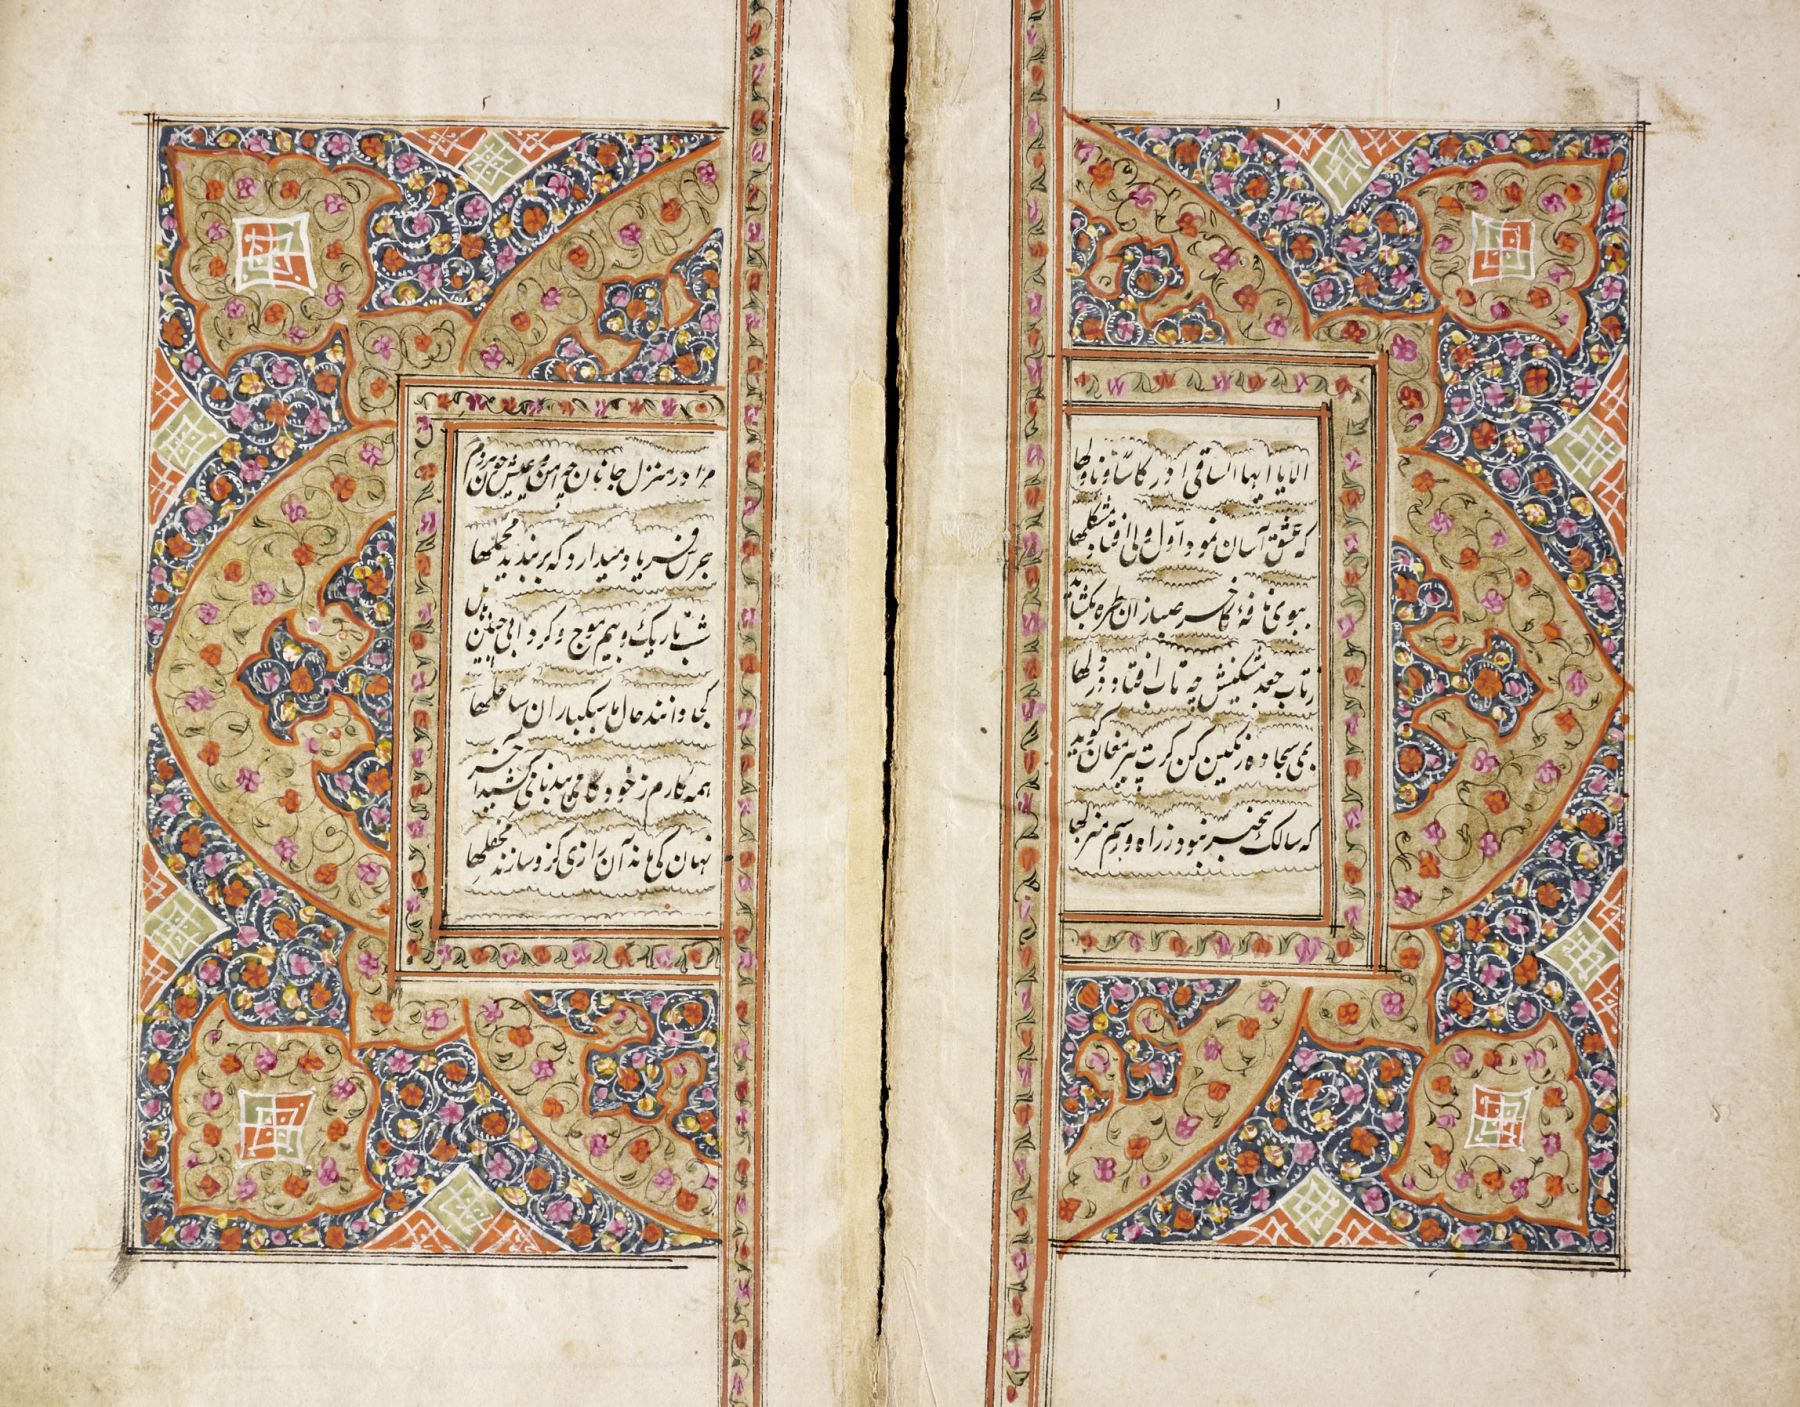 الا یا ایها الساقی ادر کاسا و ناولها
که عشق آسان نمود اول ولی افتاد مشکلها
ببوی نافهٔ کاخر صبا زان طره بکشاید
ز تاب جعد مشکینش چه تاب افتاد در دلها
بمی سجاده رنگین کن کرت پیر مغان کوید
که سالک بیخبر نبود ز راه و رسم منزلها
مرا در منزل جانان چه امن و عیش چون هردم
جرس فریاد میدارد که بربندید محملها
شب تاریک و بیم موج و کردابی چنین هایل
کجا دانند حال ما سبکباران ساحلها
همه کارم ز خود کامی ببدنامی کشید آخر
نهان کی ماند آن رازی کزو سازند محفلها